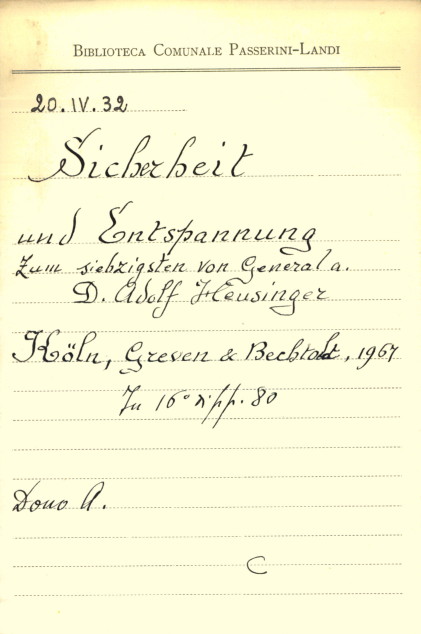 BIBLIOTECA COMUNALE PASSERINI-LANDI
20.IV.32
Sicherheit
und Entspannung
Zum siebzigsten von General a.
D. Adolf Heusinger
Köln, Greven & Bechtold, 1967
In 16° pp. 80
Dono A.
C